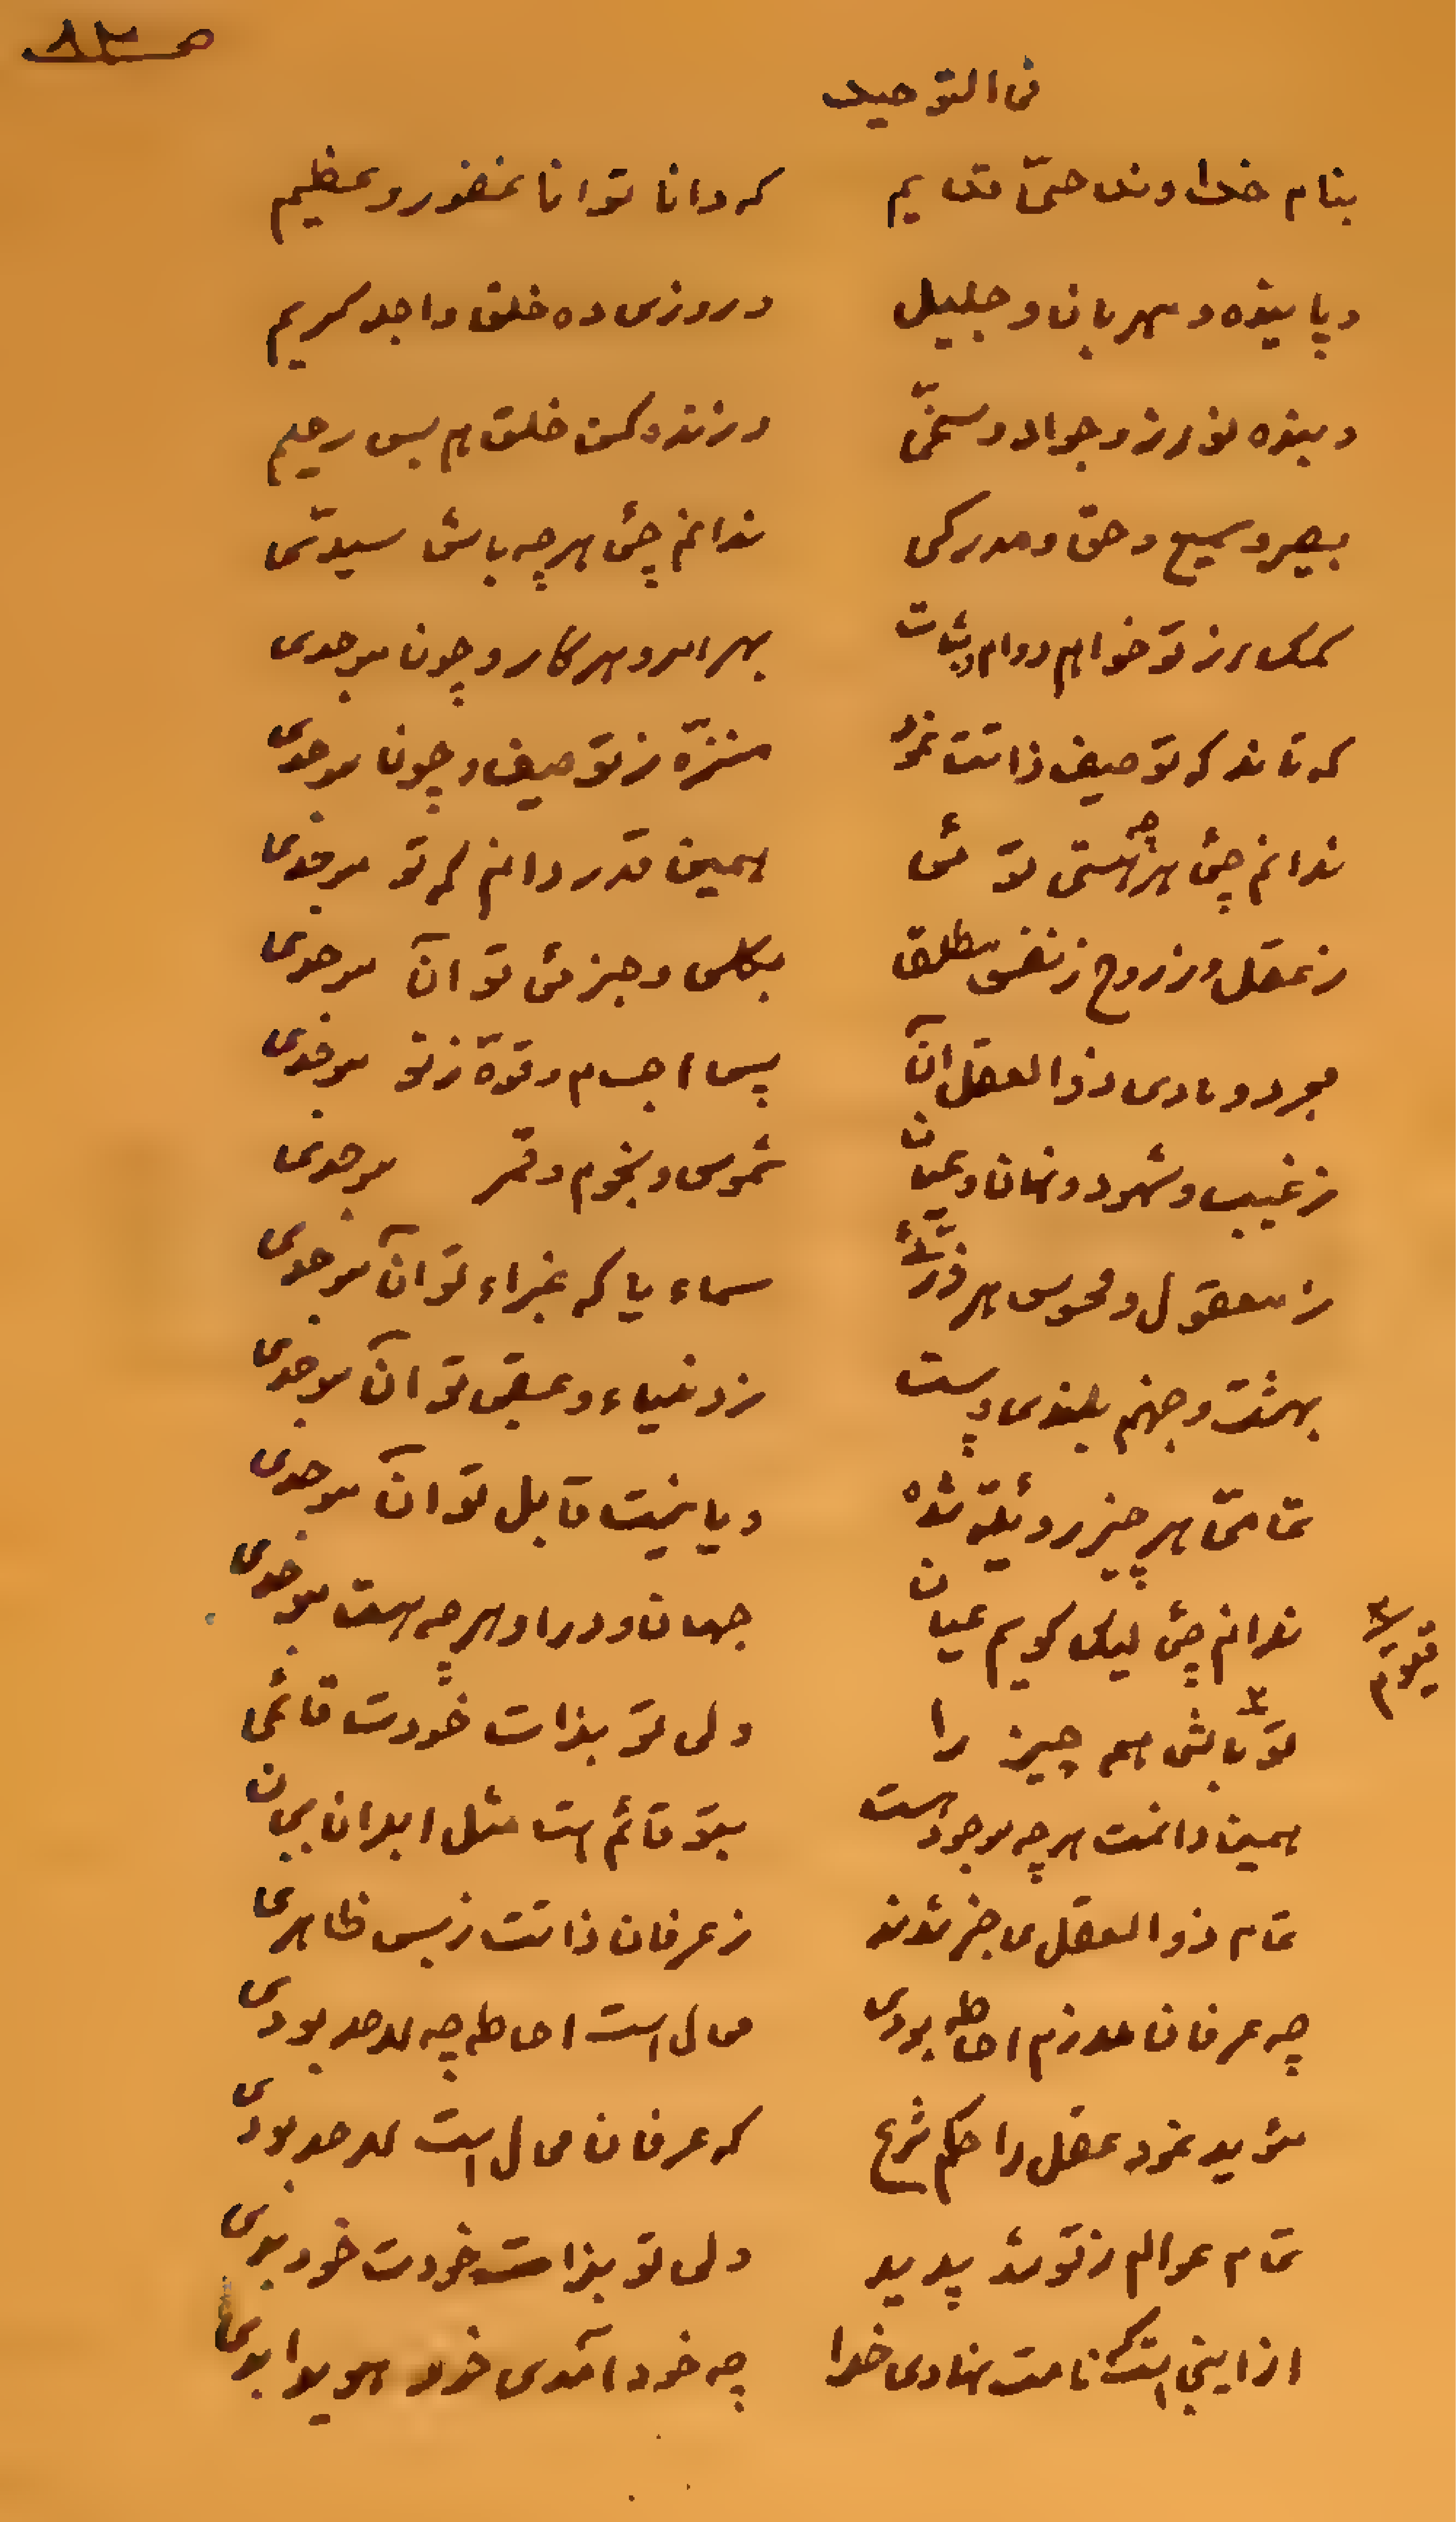 فی التوحید
بنام خداوند حیّ قدیم که دانا توانا غفور و عظیم
و پاینده و مهربان و جلیل و روزی ده خلق واجد کریم
و بنده نواز و جواد و سخیّ و زنده کن خلق هم بس رحیم
بصیر و سمیع و حق و مدرکی ندانم چئی هرچه باشی سیدّی
کمک از تو خواهم دوام و ثبات بهر امر و هر کار و چون موجدی
که تاند که توصیف ذاتت نمود منزّه ز توصیف و چون موجدی
ندانم چئی هرچه هستی توئی همین قدر دانم که تو موجدی
ز عقل و ز روح ز نفس مطلق بکلی و جزئی تو آن موجدی
مجرد و مادی ذوالعقل آن پس اجسام و قوّة ز تو موجدی
ز غیب و شهود و نهان و عیان شموس و نجوم و قمر موجدی
ز معقول و محسوس هر ذرّهٔ سماء یا که غبراء تو آن موجدی
بهشت و جهنم بلندی و پست ز دنیاء و عقبی تو آن موجدی
تمامیّ هر چیز روئیّة شده و یا نیست قابل تو آن موجدی
ندانم چئی لیک گویم عیان جهان و ورا و هرچه هست موجدی
قیوم
تو باشی همه چیز را ولی تو بذات خودت قائمی
همین دانمت هرچه موجود است بتو قائم است مثل ابدان بجان
تمام ذوالعقل عاجز شدند ز عرفان ذاتت ز بس ظاهری
چه عرفان لازم احاطه بودی محال است احاطه چه لاحد بودی
مؤید نمود عقل را حکم شرع که عرفان محال است لاحد بودی
تمام عوالم ز تو شد پدید ولی تو بذات خودت خود بودی
از اینی است که نامت نهادی خدا چه خود آمدی خود هویدا بودی